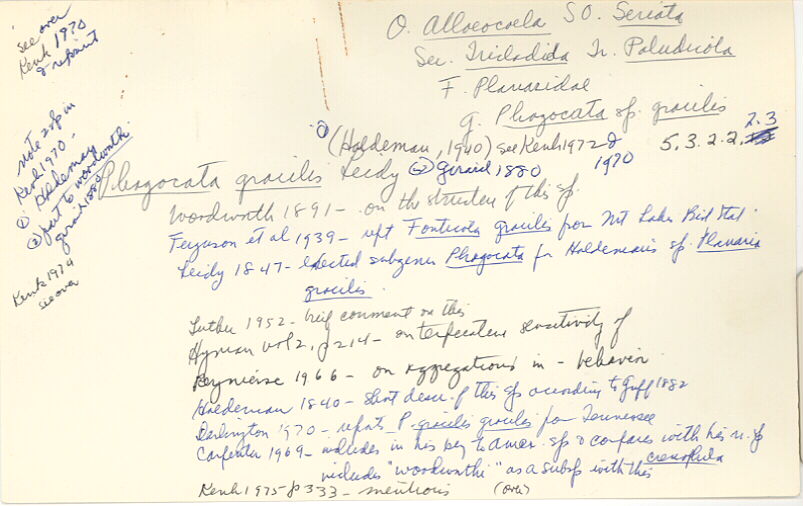 see over
Kenk 1970
& reprint
O. Alloeocoela SO. Seriata
Sec. Tricladida Tr. Paludicola
F. Planaridae
g. Phagocata sp. gracilis
5.3.2.2. 2.3
(Haldeman, 1940) see Kenk 1972 &
1970
note 2 sp in
Kenk 1970 -
① Haldeman
② part to woodworth
girard 1880
Kenk 1974
see over
Phagocata gracilis Leidy ② girard 1880
Woodworth 1891 - on the structure of this sp.
Ferguson et al 1939 - rept Fonticola gracilis from Mt Lake Biol Sta.
Leidy 1847 - erected subgenus Phagocata for Haldeman's sp. Planaria
gracilis.
Luther 1952 - brief comment on this
Hyman vol 2, p 214 - on temperature sensitivity of
Reynierse 1966 - on aggregations in - behavior
Haldeman 1840 - short descr. of this sp according to Graff 1882
Darlington 1970 - reports P. gracilis gracilis from Tennessee
Carpenter 1969 - includes in his key to amer. sp & compares with his n. sp
includes "woodworthi" as a subsp with this
Kenk 1975 p 333 - mentions (over)